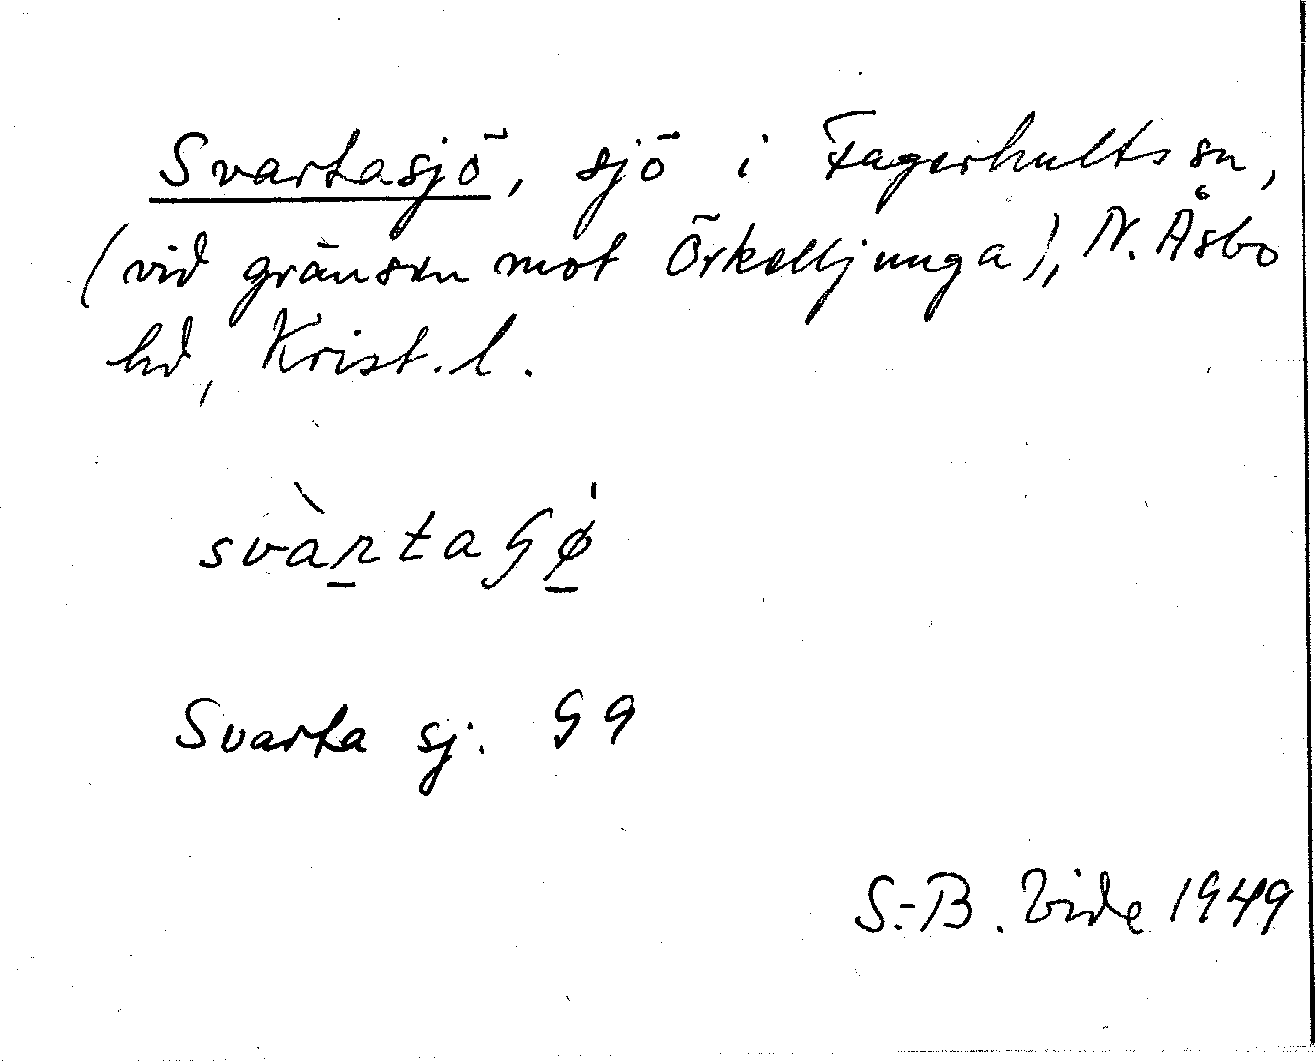 Svartasjö, sjö i Fagerhults sn,
(vid gränsen mot Örkelljunga), N. Åsbo
hd, Krist. l.
Svarta sj. G 9
S.-B. Vide 1949